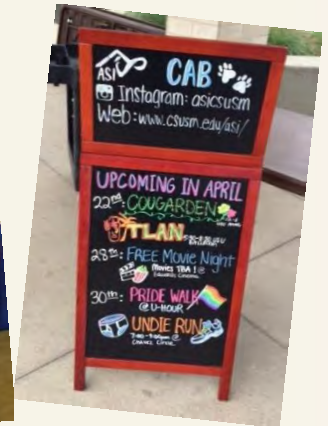 ASI
CAB
Instagram: asicsusm
Web: www.csusm.edu/asi/
UPCOMING IN APRIL
22nd: COUGARDEN
TLAN
28th: FREE Movie Night
Movies TBA! @
30th: PRIDE WALK
@ U-HOUR
UNDIE RUN